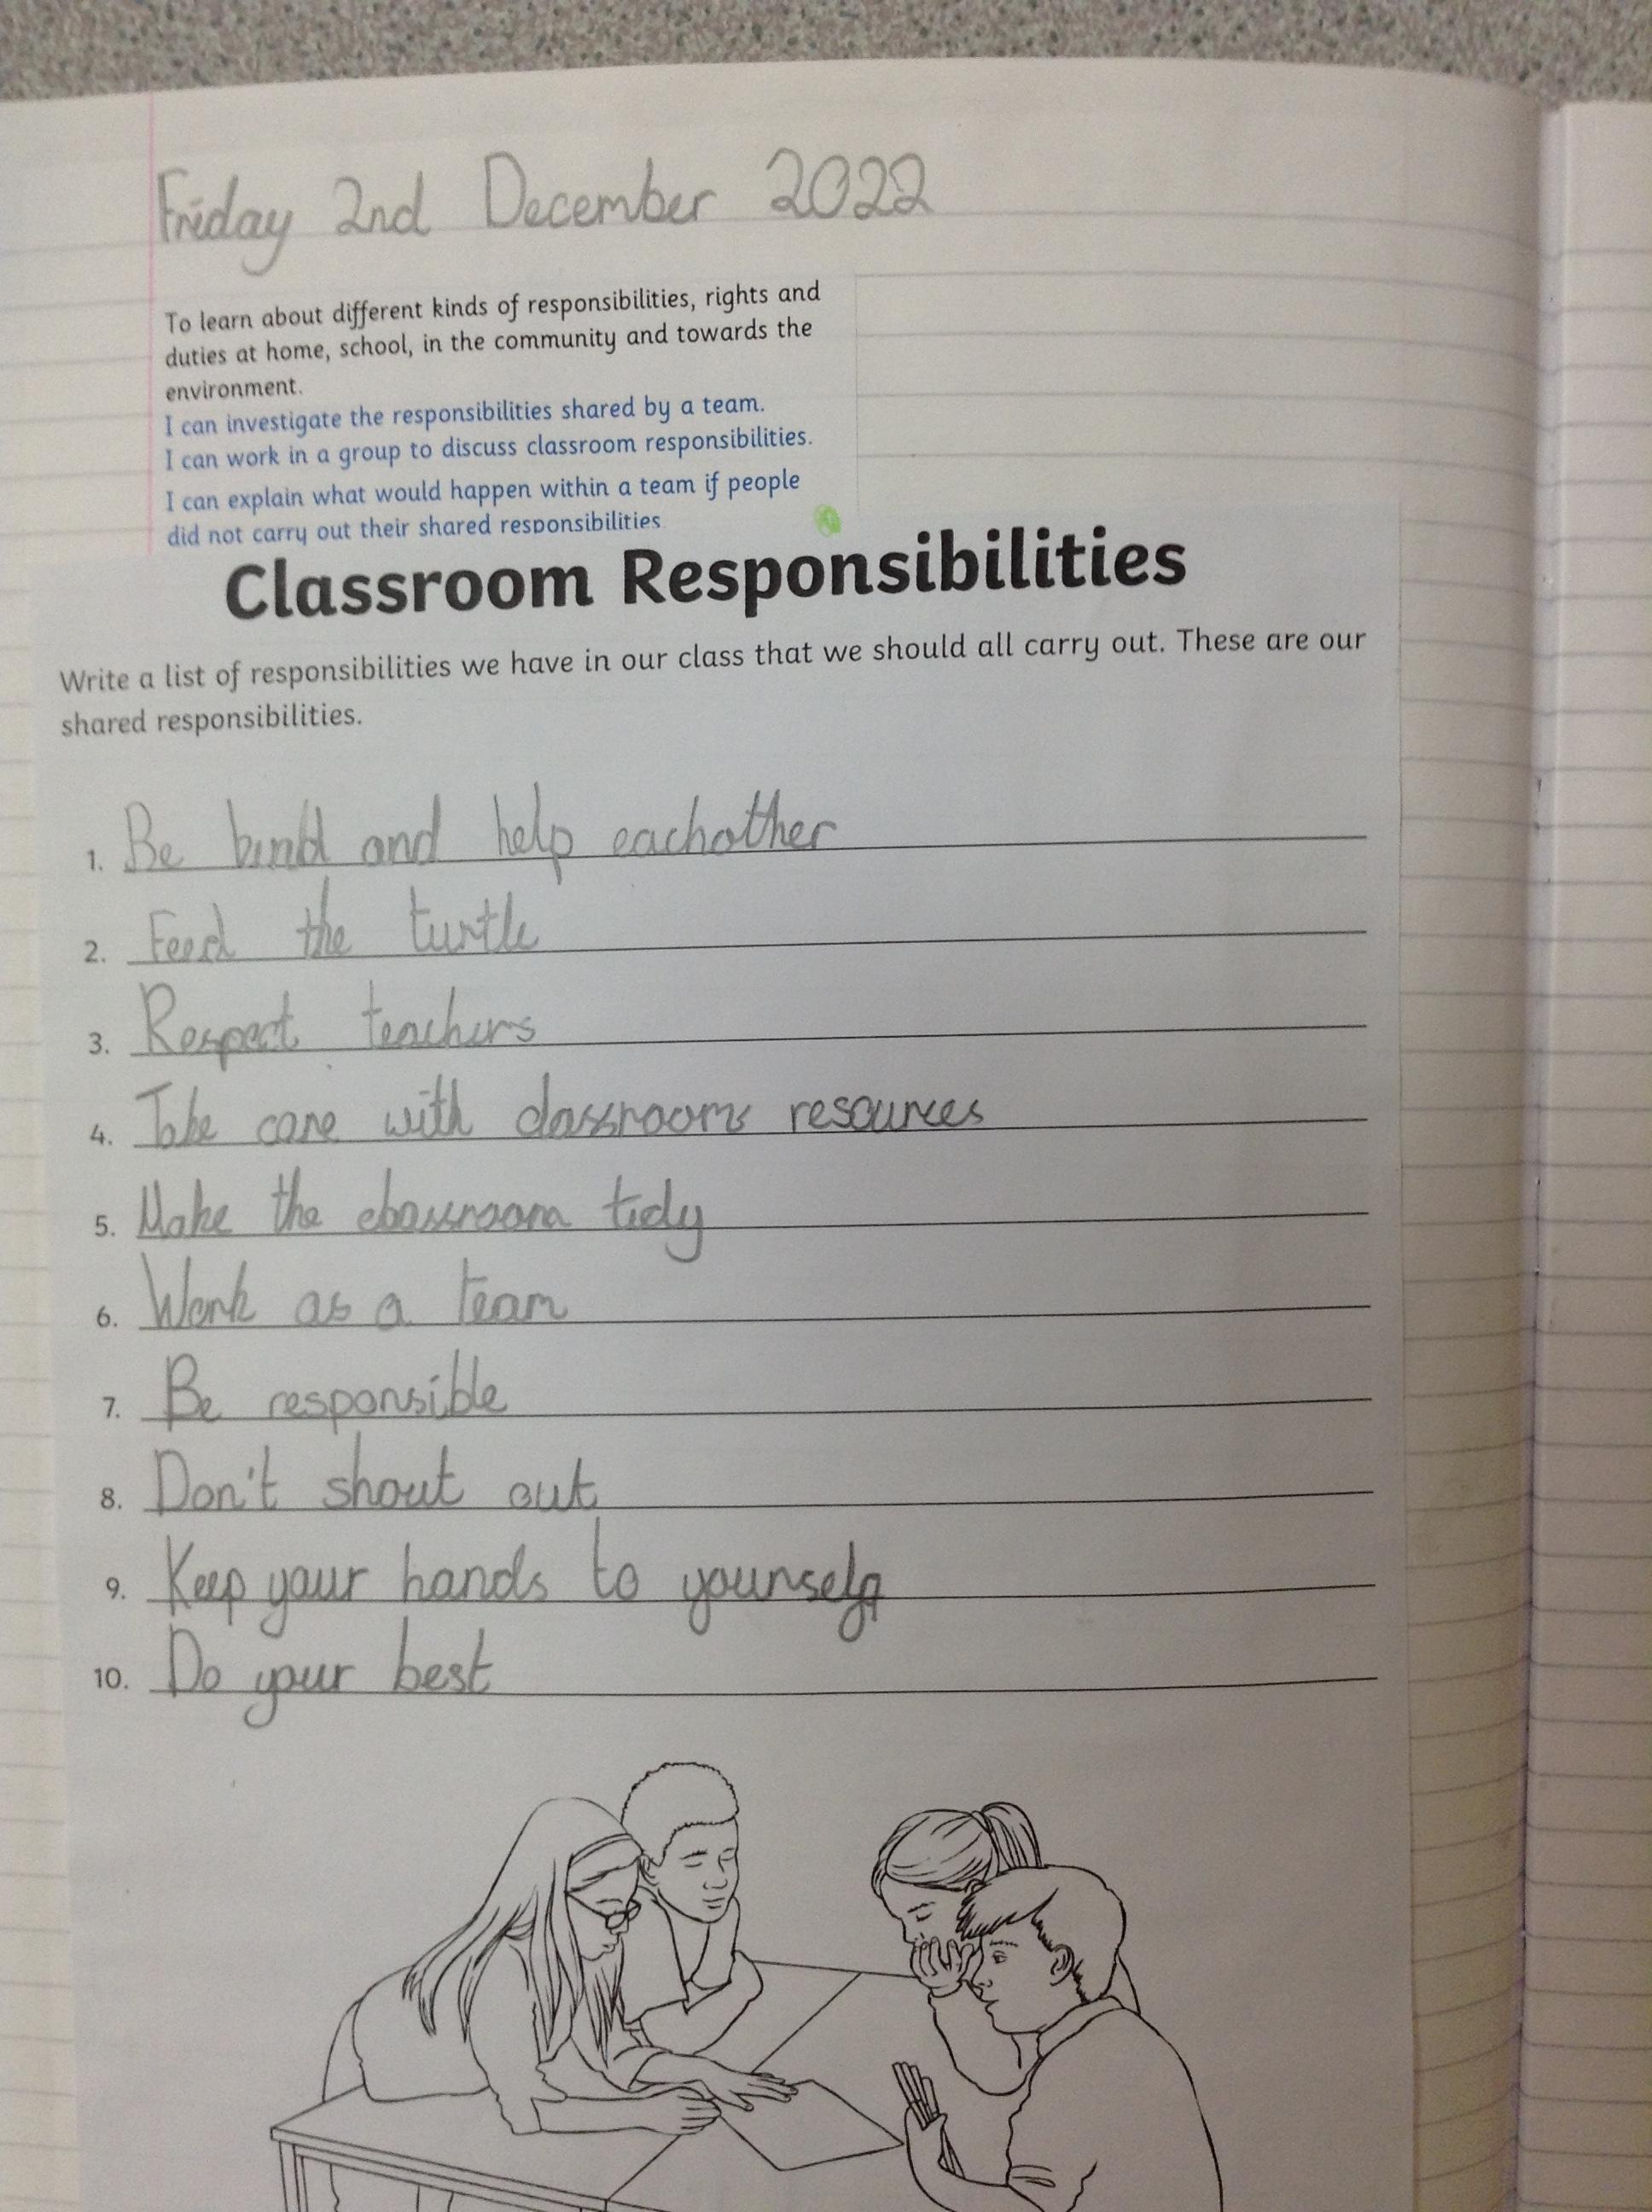 Friday 2nd December 2022
To learn about different kinds of responsibilities, rights and
duties at home, school, in the community and towards the
environment.
I can investigate the responsibilities shared by a team.
I can work in a group to discuss classroom responsibilities.
I can explain what would happen within a team if people
did not carry out their shared responsibilities
Classroom Responsibilities
Write a list of responsibilities we have in our class that we should all carry out. These are our
shared responsibilities.
1. Be kind and help eachother
2. Feed the turtle
3. Respect teachers
4. Take care with classrooms resources
5. Make the classroom tidy
6. Work as a team
7. Be responsible
8. Don't shout out
9. Keep your hands to yourself
10. Do your best